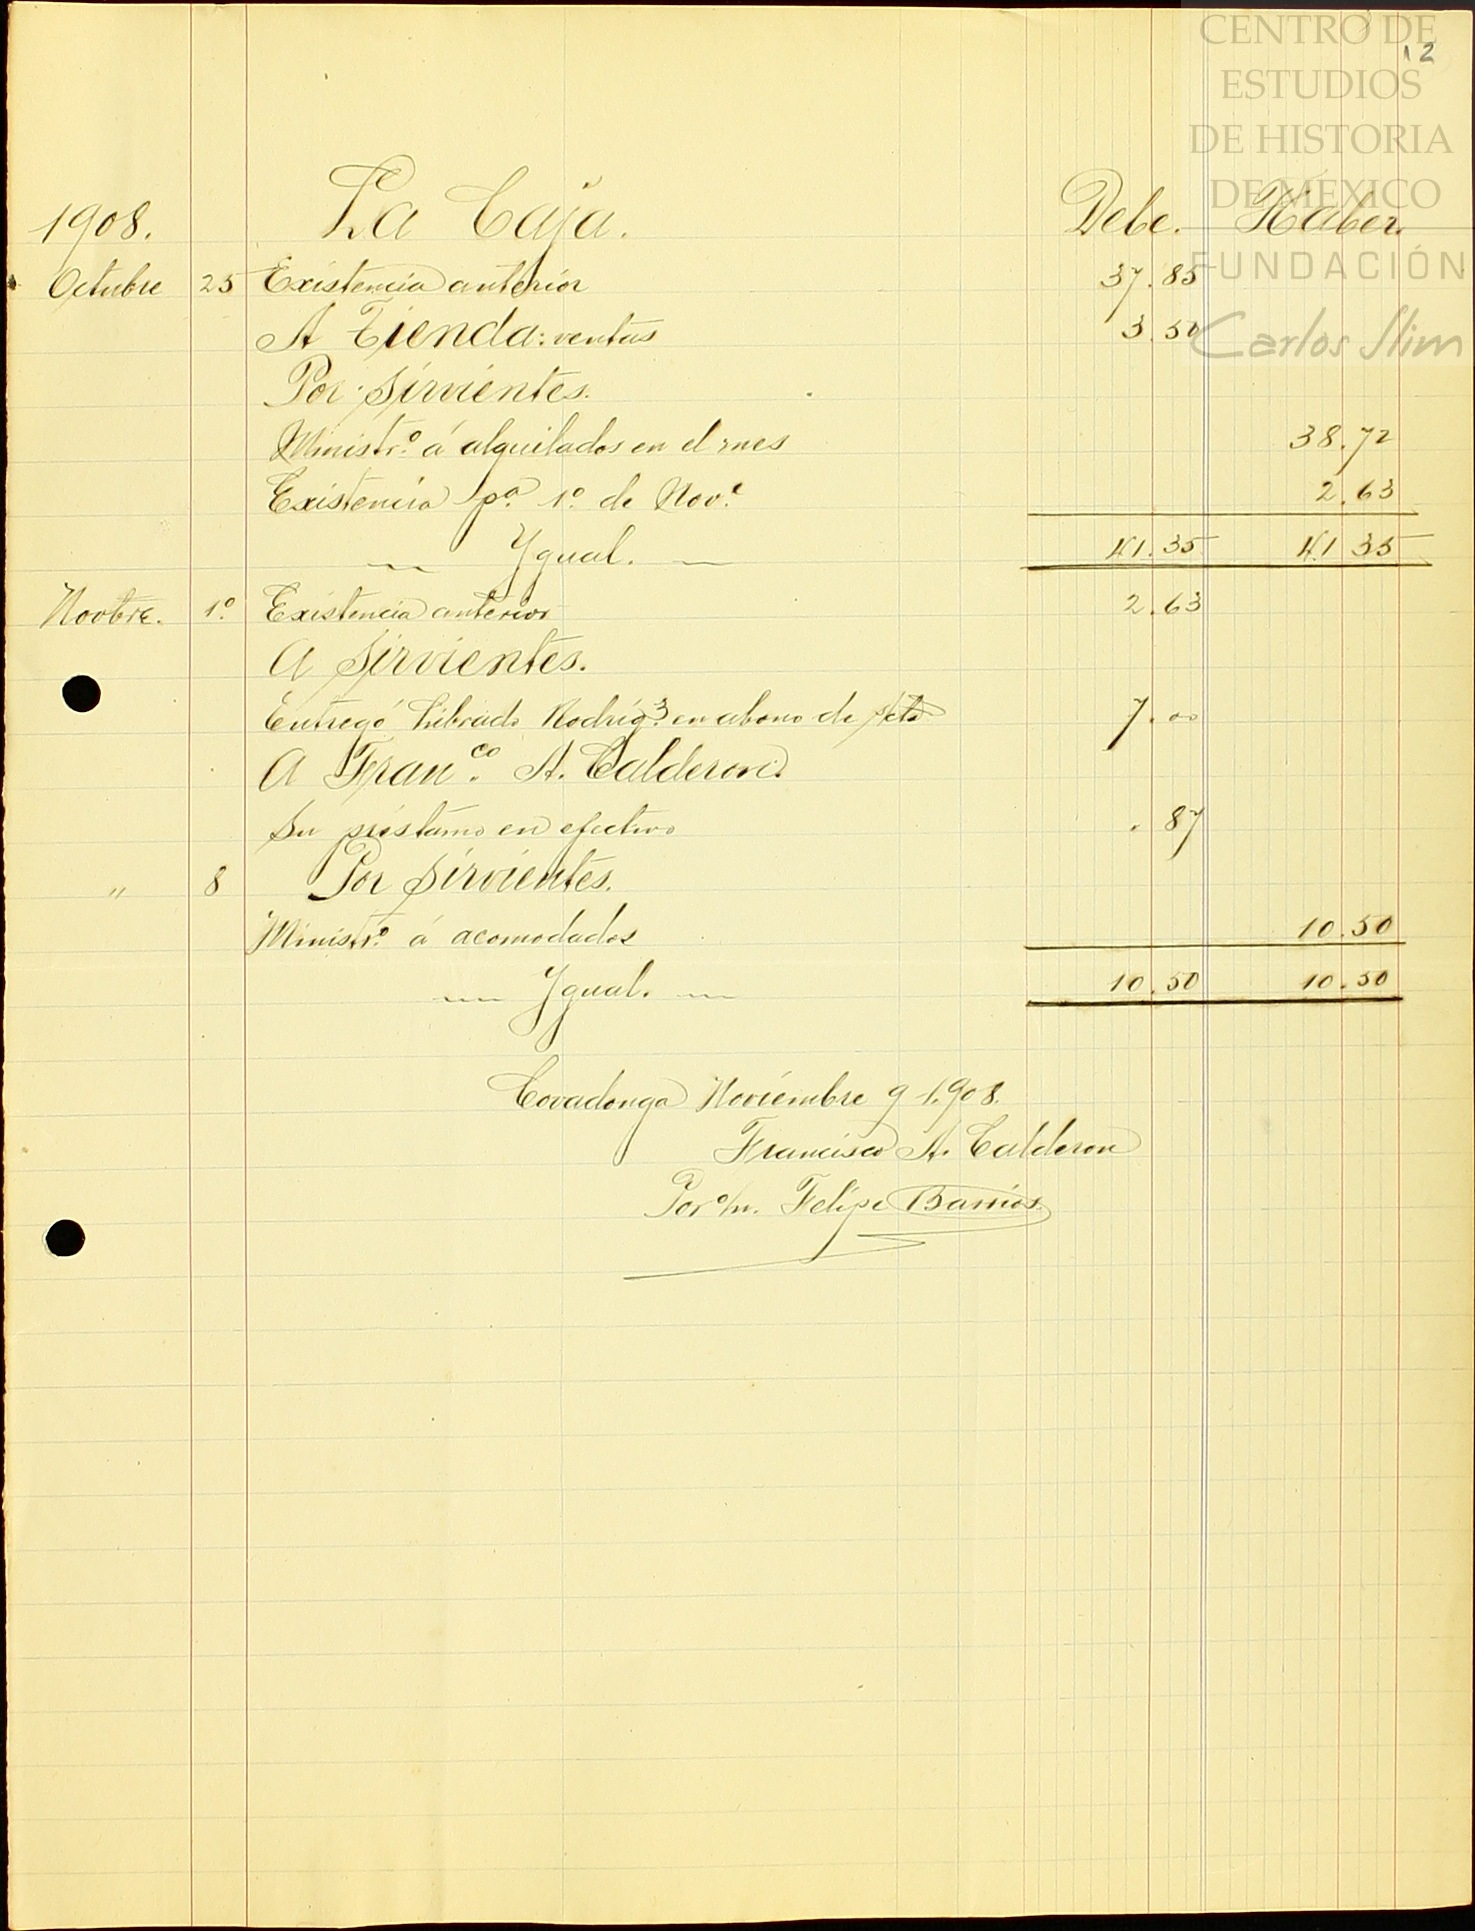 CENTRO DE
12
ESTUDIOS
DE HISTORIA
DE MÉXICO
FUNDACIÓN
Carlos Slim
1908. La Caja. Debe. Haber.
Octubre 25 Existencia anterior 37.85
A Tienda: ventas 3.50
Por Sirvientes.
Ministr.º á alquilados en el mes 38.72
Existencia p.ª 1º. de Nov.e 2.63
Ygual. 41.35 41 35
Novbre. 1º. Existencia anterior 2.63
A Sirvientes.
Entregó Librado Rodríg.z en abono de 7.00
A Fran.co A. Calderon.
Su préstamo en efectivo .87
" 8 Por Sirvientes.
Ministr.º á acomodados 10.50
Ygual. 10.50 10.50
Covadonga Noviembre 9 1.908.
Francisco A. Calderon
Por o/m. Felipe Barrios.